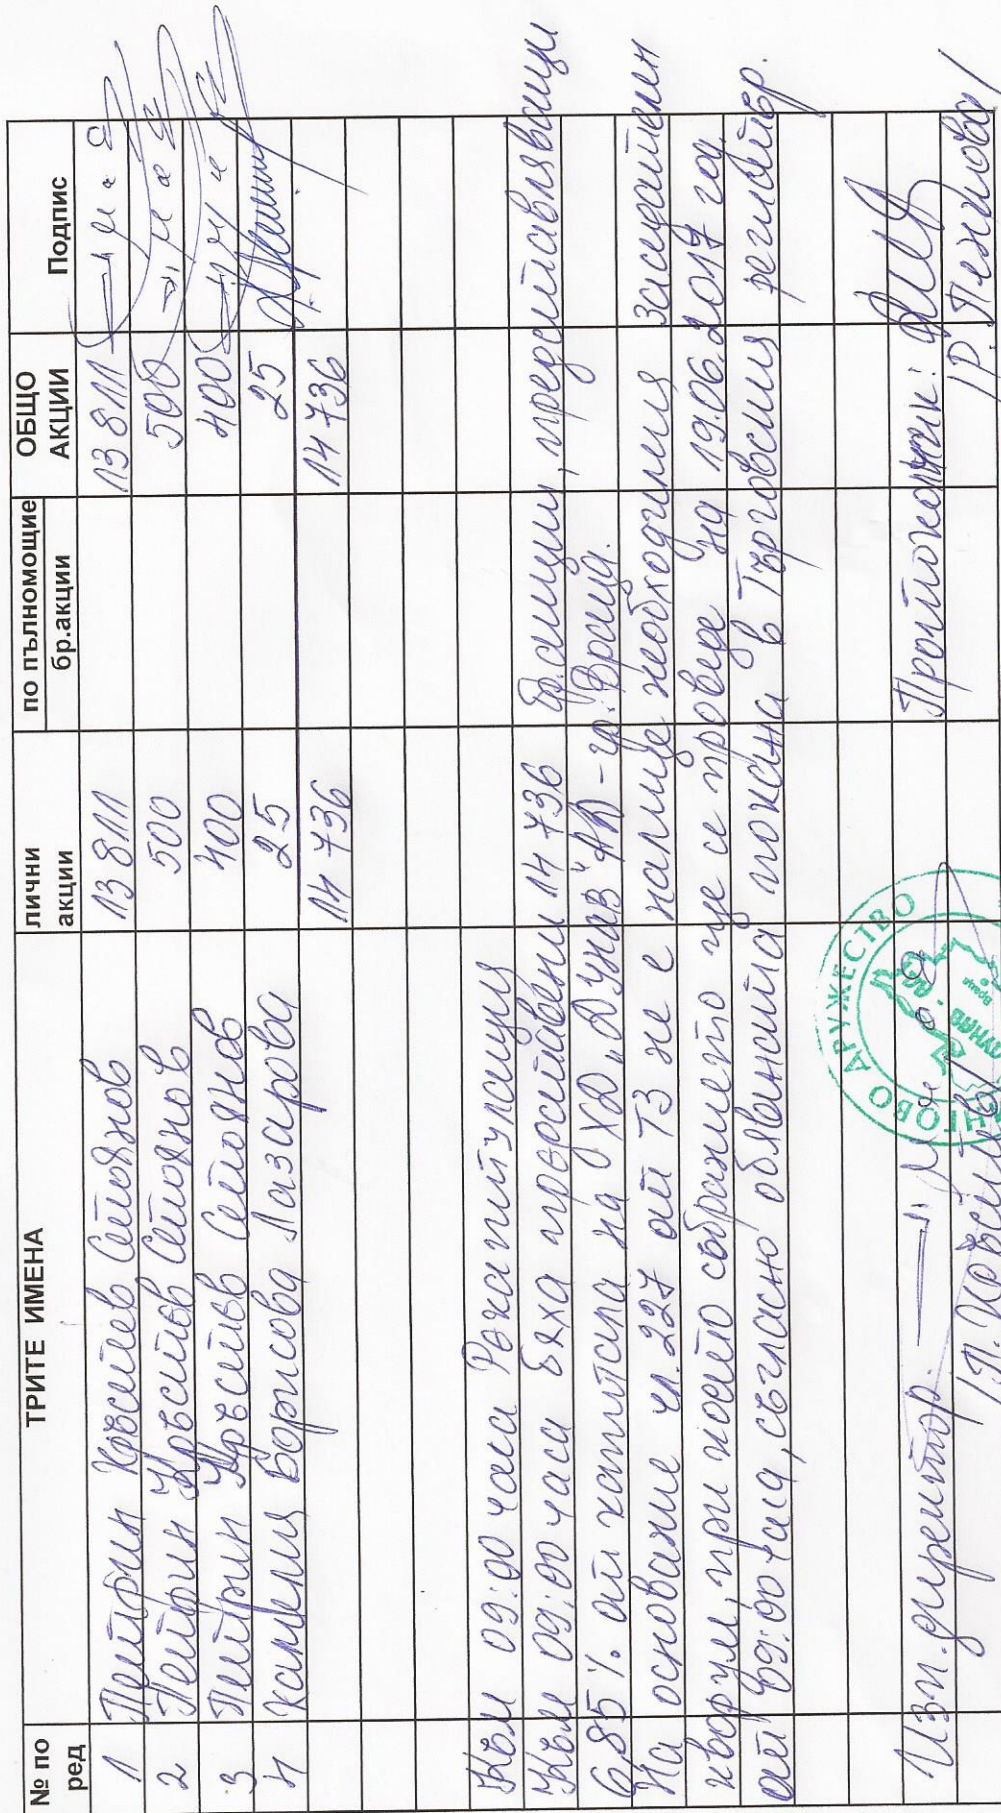 № по ред ТРИТЕ ИМЕНА лични акции по пълномощие бр.акции ОБЩО АКЦИИ Подпис
1 Петрин Кръстев Стоянов 13 811 13 811
2 Петрин Кръстев Стоянов 500 500
3 Петрин Кръстев Стоянов 400 400
4 Камелия Борисова Лазарова 25 25
14 736 14 736
Към 09:00 часа Рекапитулация
Към 09:00 часа бяха представени 14 736 бр. акции, представляващи
6,85 % от капитала на ХД "Дунав" АД - гр. Враца.
На основание чл. 227 от ТЗ не е налице необходимия заседателен
кворум, при което събранието ще се проведе на 19.06.2017 год.
от 09:00 часа, съгласно обявената покана в Търговския регистър.
Изп. директор: Протоколчик:
/П. /Р. Пенкова/
ДРУЖЕСТВО
ДУНАВ
Враца